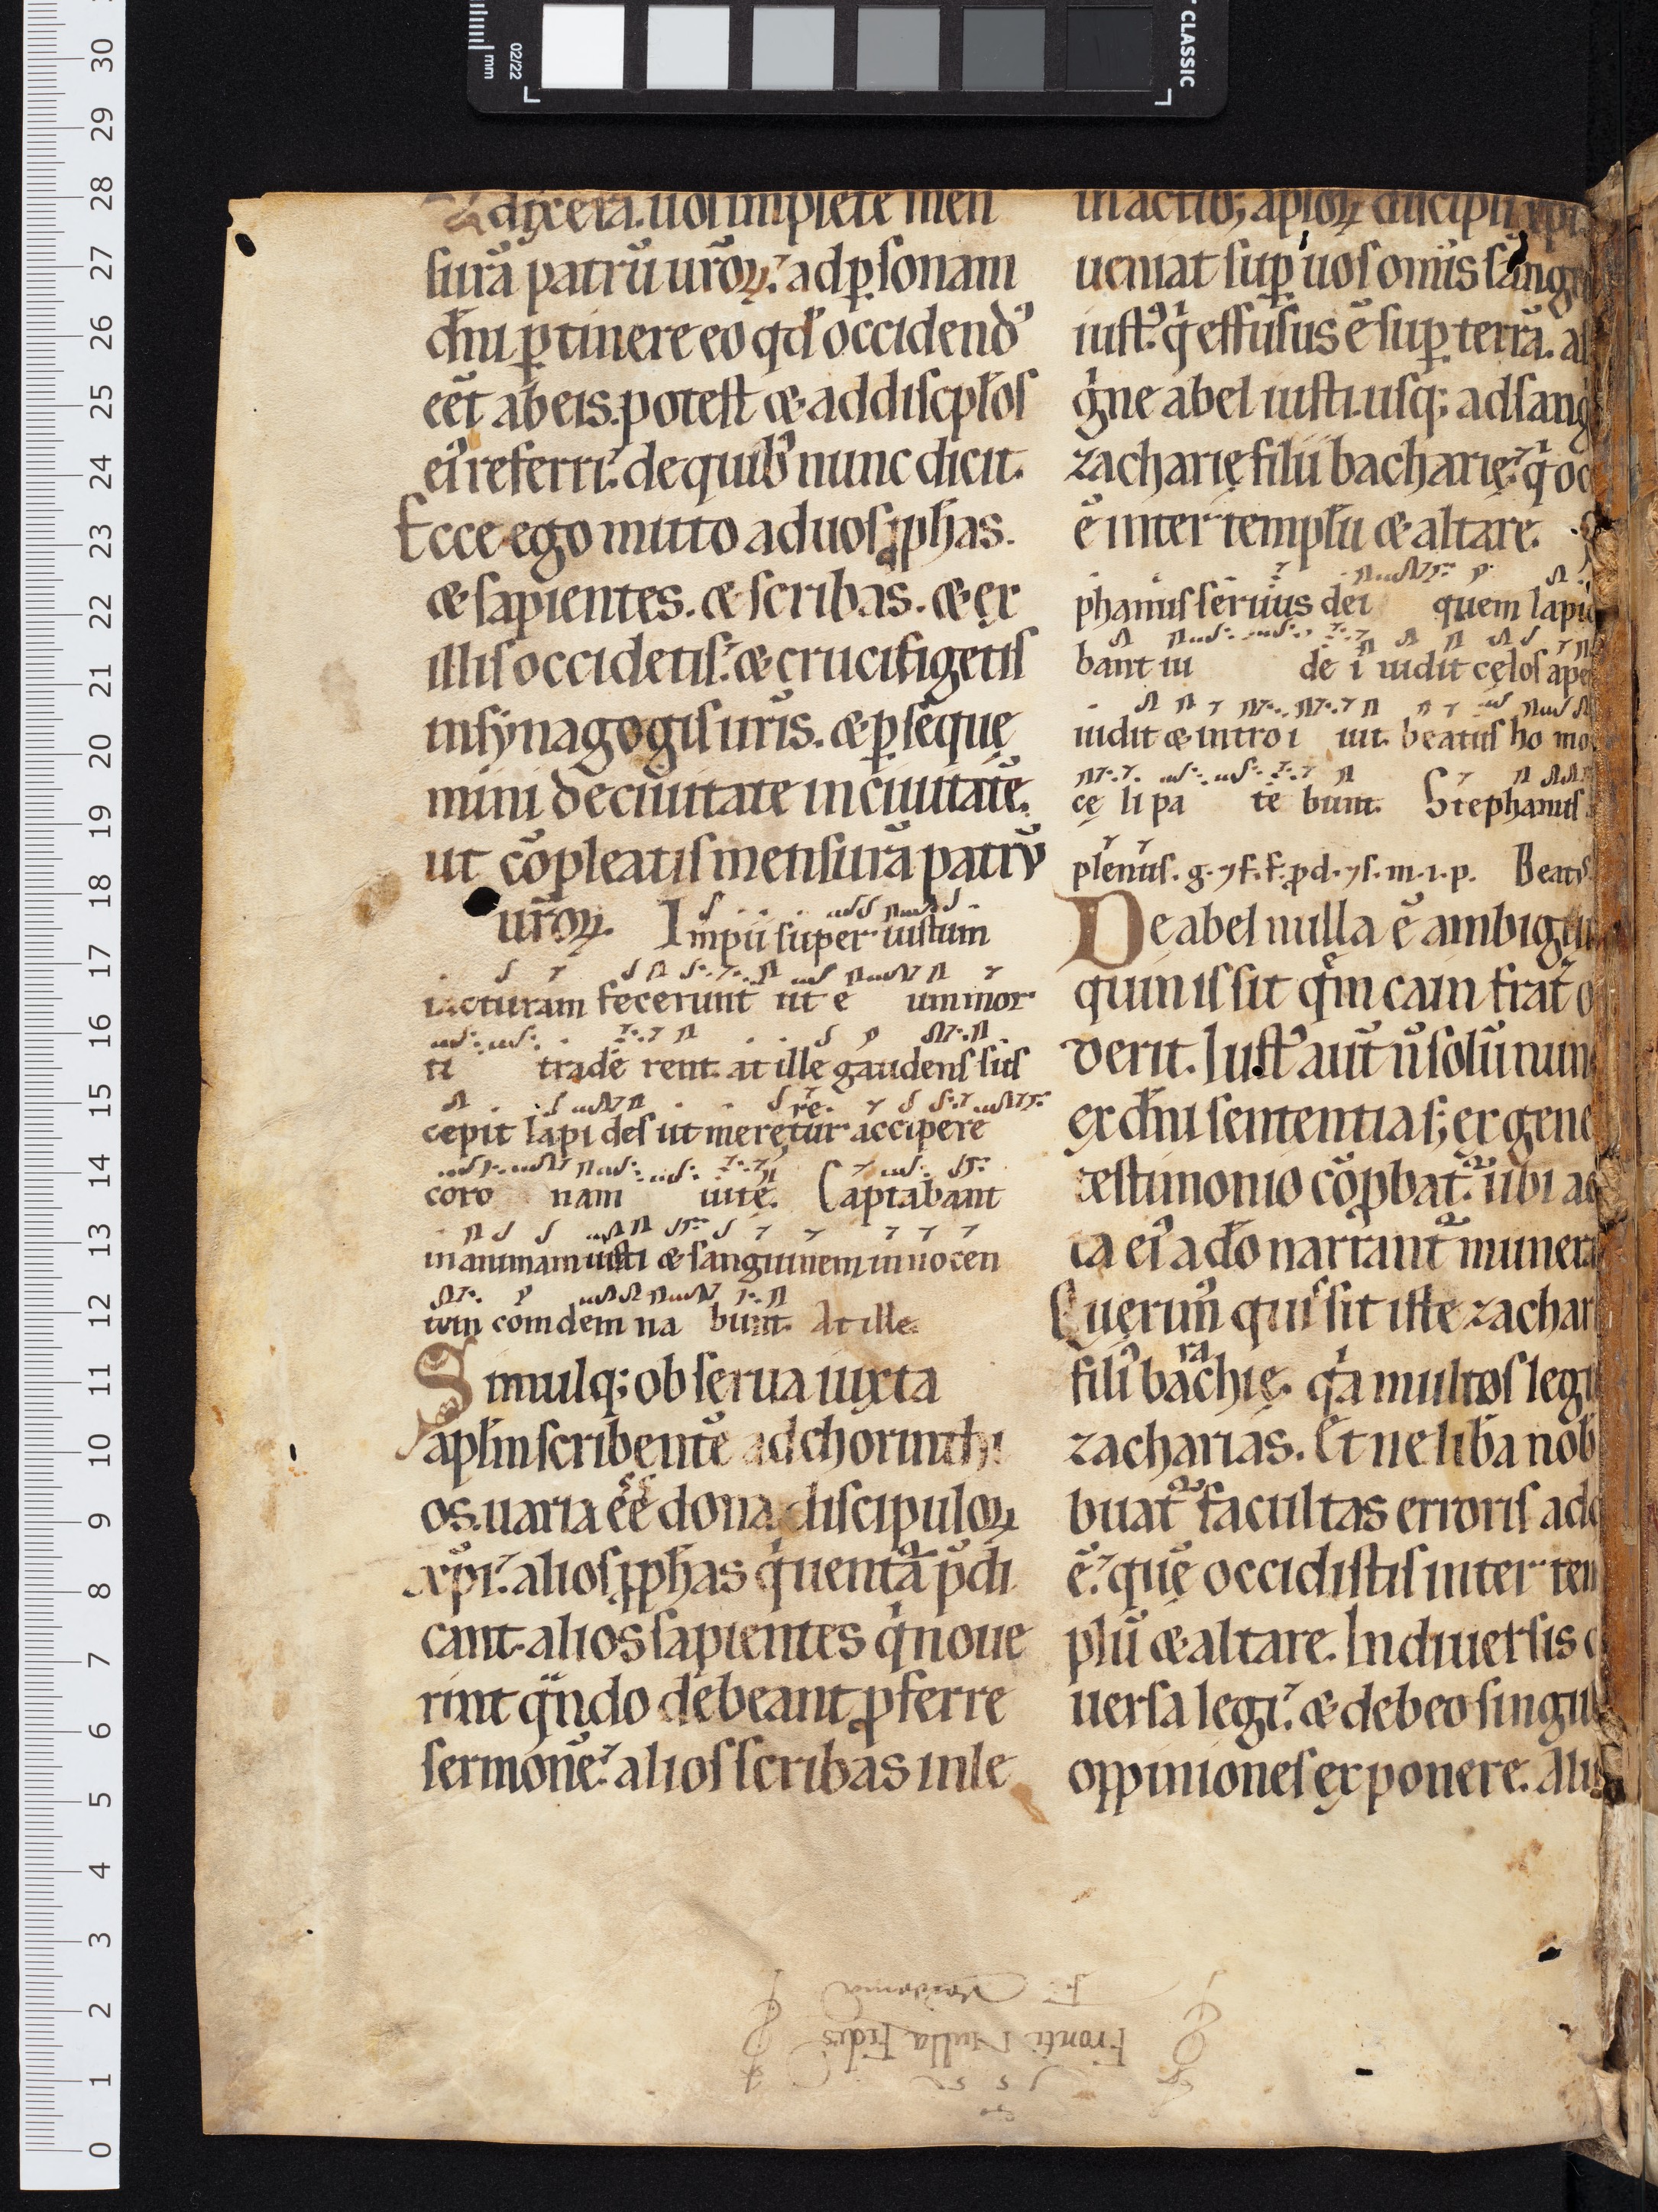 & dixerā. uos implete men
surā patrū ur̄oꝝ. ad ꝑsonam
dn̄i ꝑtinere eo qđ occidendꝰ
eēt ab eis. potest & ad discpl̄os
eiꝰ referri. de quibꝰ nunc dicit.
Ecce ego mitto ad uos ꝓphas.
& sapientes. & scribas. & ex
illis occidetis. & crucifigetis
in synagogis uris. & ꝑseque
mini de ciuitate in ciuitatē.
ut cōpleatis mensurā patrū
ur̄oꝝ. Impii super iustum
iacturam fecerunt ut e um mor
ti trade rent. at ille gaudens sus
cepit lapi des ut meretur accipere
re
coro nam uite. Captabant
in animam iusti & sanguinem innocen
tem comdem na bunt. At ille.
Simulq; obserua iuxta
apl̄m scribentē ad chorinthi
os. uaria eē dona discipuloꝝ
xp̄i. alios ꝓphas q̇ uentā p̄di
cant. alios sapientes q̇ noue
rint q̄ndo debeant ꝓferre
sermonē. alios scribas in le
in actibꝫ aplōꝝ discipli xp̄i
ueniat suꝑ uos omīs sang
iustꝰ. q̇ effusus ē suꝑ terrā. a
gne abel iusti. usq; ad sang
zacharię filii bacharię. q̇ oc
ē inter templū & altare.
phanus seruus dei quem lapid
bant iu de i uidit cęlos ape
uidit & introi iut. beatus ho mo
cę li pa te bunt. Stephanus
plenus. g. ⁊ f. f. ꝓd. ⁊ s. m. i. p. Beatꝰ
De abel nulla ē ambigui
quin is sit q̄m cain frat̄ o
derit. Iustꝰ aut̄ n̄ solū nun
ex dn̄i sententia sꝫ ex gene
testimonio cōꝓbat̄. ubi ac
ta eiꝰ a dō narrant̄ munera
Querimꝰ quis sit iste zachar
filiꝰ bachię. q̇a multos legi
ra
zacharias. Et ne libā nob
buat̄ facultas erroris add
ē. quē occidistis inter tem
plū & altare. In diuersis d
uersa legi. & debeo singul
oppiniones exponere. Alii
Fronti Nulla Fides